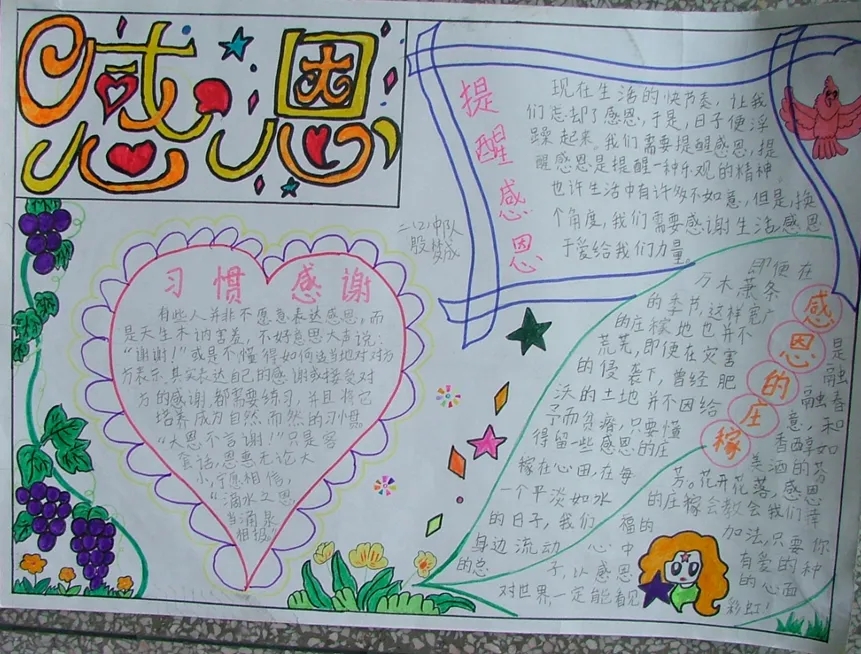 感恩
提醒感恩
现在生活的快节奏，让我
们忘却了感恩，于是，日子便浮
躁起来。我们需要提醒感恩，提
醒感恩是提醒一种乐观的精神。
也许生活中有许多不如意，但是，换
个角度，我们需要感谢生活，感恩
于爱给我们力量。
二(2)中队
殷梦成
习惯感谢
有些人并非不愿意表达感恩，而
是天生木讷害羞，不好意思大声说：
“谢谢！”或是不懂得如何适当地对对方
方表示。其实表达自己的感谢或接受对
方的感谢都需要练习，并且将它
培养成为自然而然的习惯。
“大恩不言谢！”只是客
套话，恩惠无论大
小，宁愿相信，
“滴水之恩
当涌泉
相报”
感恩的庄稼
即便在
万木萧条
的季节，这样宽广
的庄稼地也并不
荒芜，即便在灾害
的侵袭下，曾经肥
沃的土地并不因给
予而贫瘠，只要懂
得留一些感恩的庄
稼在心田，在每
一个平淡如水
的日子，我们
身边流动
的总
是
融融春
意，和
香醇如
美酒的芬
芳。花开花落，感恩
的庄稼会教会我们幸
福的加法，只要你
心中有爱的种
子，以感恩的心面
对世界，一定能看见彩虹！